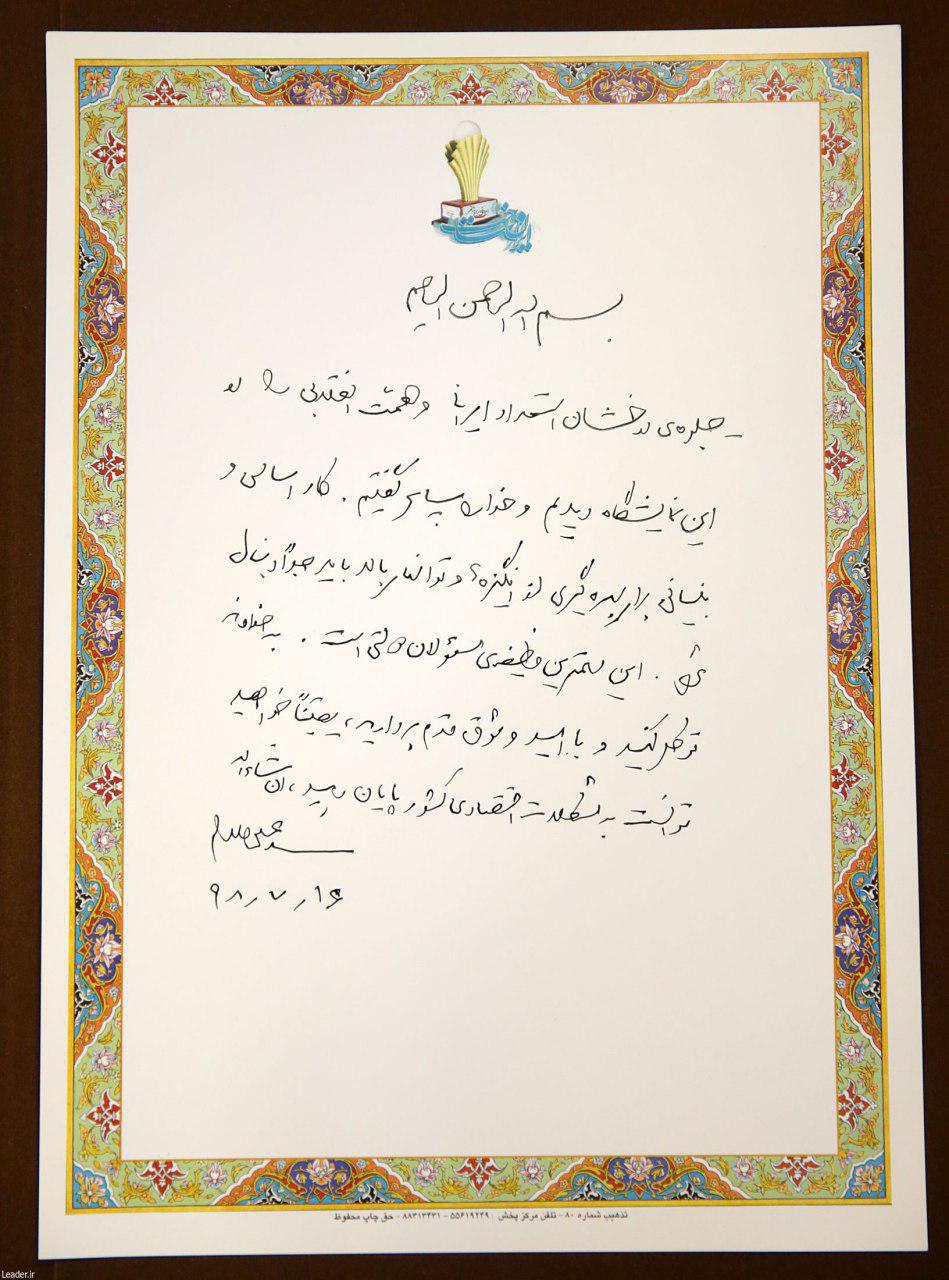 بسم الله الرحمن الرحیم
جلوه‌ی درخشان استعداد ایرانی و همّت انقلابی را در
این نمایشگاه دیدیم و خدا را سپاس گفتیم. کار اساسی و
بنیانی برای بهره‌گیری از انگیزه‌ها و توانهای بالا باید جدّاً دنبال
شود. این مهمترین وظیفه‌ی مسؤولان دولتی است. به خداوند
توکل کنید و با امید و وثوق قدم بردارید، یقیناً خواهید
توانست به مشکلات اقتصادی کشور پایان دهید، ان شاءالله
سید علی خامنه‌ای
۹۸٫۷٫۱۶
تذهیب شماره ۸۰ - تلفن مرکز پخش : ۵۵۶۱۹۲۴۹ - ۸۸۳۱۳۴۳۱ - حق چاپ محفوظ
Leader.ir